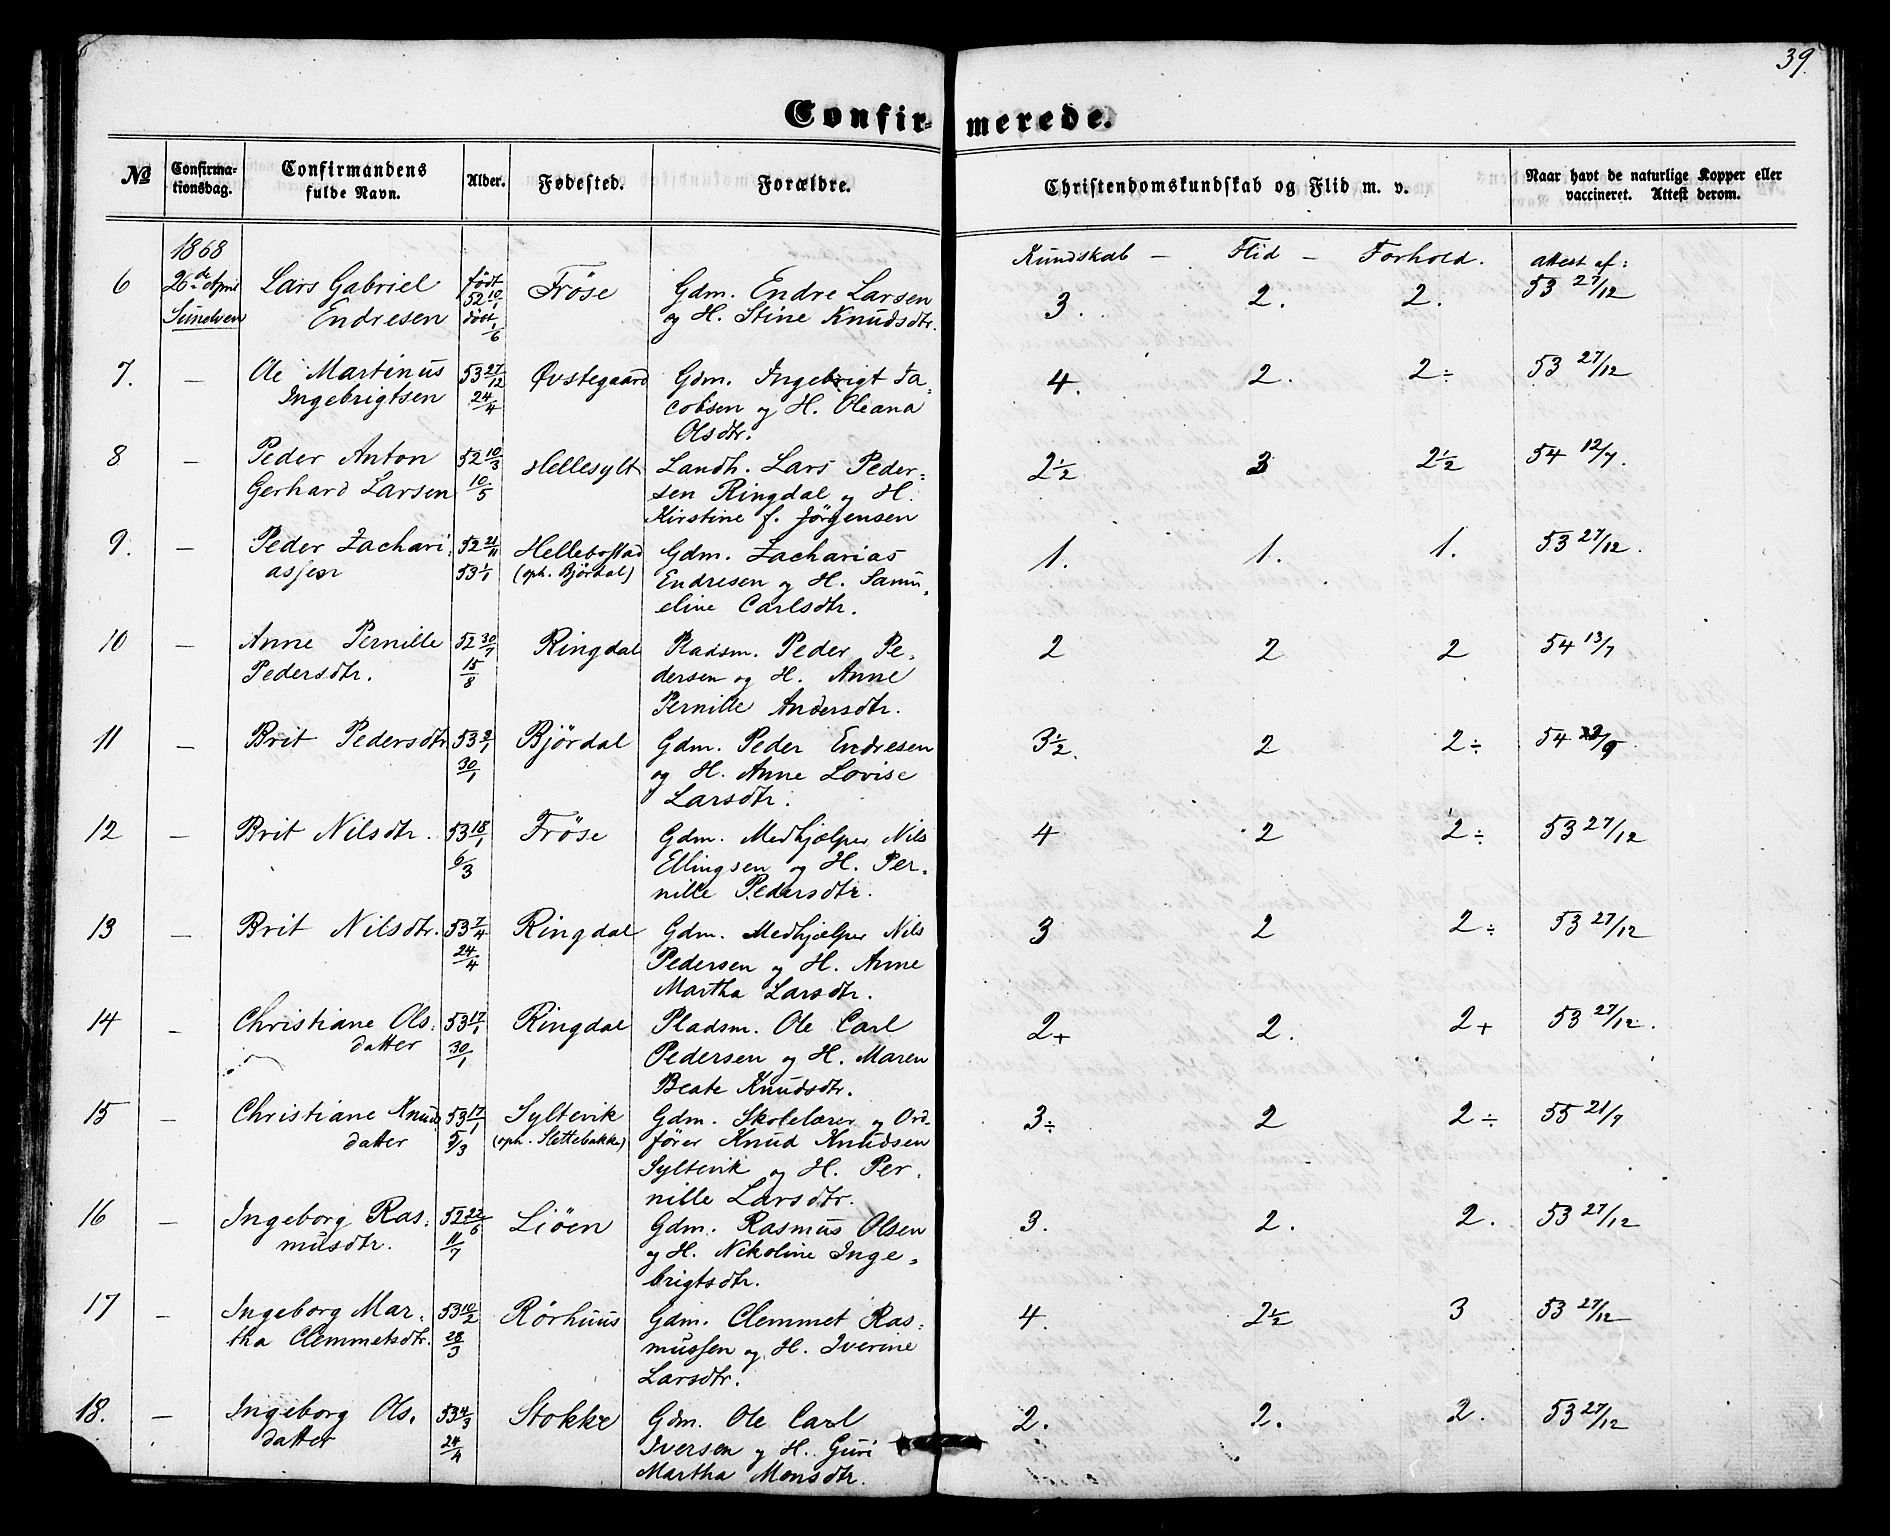 39.
Confir- merede.
No Confirma-tionsdag. Confirmandens fulde Navn. Alder. Fødested. Forældre. Christendomskundskab og Flid m. v. Naar havt de naturlige Kopper eller vaccineret. Attest derom.
1868 Kundskab — Flid — Forhold. attest af:
6 26de April Lars Gabriel født 52 10/1 Fröse Gdm. Endre Larsen 3. 2. 2. 53 27/12
Sunelven Endresen døbt 1/6 og H. Stine Knudsdtr.
7. — Ole Martinus 53 27/12 Øvstegaard Gdm. Ingebrigt Ja- 4. 2. 2÷ 53 27/12
Ingebrigtsen 24/4 cobsen og H. Oleana
Olsdtr.
8 — Peder Anton 52 10/3 Hellesylt Landh. Lars Peder- 2½ 3 2½ 54 12/7.
Gerhard Larsen 10/5 sen Ringdal og H.
Kirstine f. Jörgensen
9. — Peder Zachari- 52 21/11 Hellebostad Gdm. Zacharias 1. 1. 1. 53 27/12.
assen 53 1/1 (oph. Bjørdal) Endresen og H. Samu-
eline Carlsdtr.
10 — Anne Pernille 52 30/7 Ringdal Pladsm. Peder Pe- 2 2 2 54 13/7
Pedersdtr. 15/8 dersen og H. Anne
Pernille Andersdtr.
11 — Brit Pedersdtr 53 2/1 Björdal Gdm. Peder Endresen 3½. 2 2÷ 54 /9
30/1 og H. Anne Lovise
Larsdtr.
12 — Brit Nilsdtr. 53 18/1 Fröse Gdm. Medhjælper Nils 4 2 2÷ 53 27/12
6/3 Ellingsen og H. Per-
nille Pedersdtr.
13 — Brit Nilsdtr. 53 7/4 Ringdal Gdm. Medhjælper Nils 3 2 2÷ 53 27/12
24/4 Pedersen og H. Anne
Martha Larsdtr.
14 — Christiane Ols- 53 17/1 Ringdal Pladsm. Ole Carl 2+ 2. 2+ 53 27/12.
datter 30/1 Pedersen og H. Maren
Beate Knudsdtr.
15 — Christiane Knuds 53 17/1 Syltevik Gdm. Skolelærer og Ord- 3÷ 2 2÷ 55 21/9
datter 5/3 (oph. Slettebakke) fører Knud Knudsen
Syltevik og H. Per-
nille Larsdtr.
16 — Ingeborg Ras- 52 22/6 Liöen Gdm. Rasmus Olsen 3. 2. 2. 53 27/12
musdtr. 11/7 og H. Nikoline Inge-
brigtsdtr.
17 — Ingeborg Mar- 53 10/2 Rørhuus Gdm. Clemmet Ras- 4. 2½ 3 53 27/12
tha Clemmetsdtr. 28/3 mussen og H. Iverine
Larsdtr.
18. — Ingeborg Ols- 53 4/3 Stokke Gdm. Ole Carl 2. 2. 2. 53 27/12
datter 24/4 Iversen og H. Guri
Martha Monsdtr.